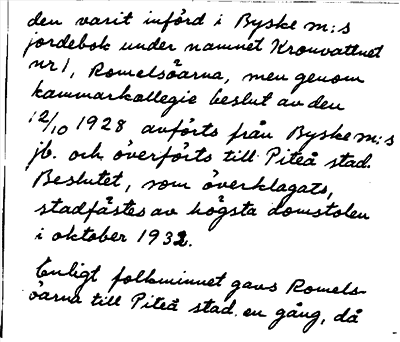 den varit införd i Byske m:s
jordebok under namnet Kronvattnet
nr 1, Romelsöarna, men genom
kammarkollegie beslut av den
12/10 1928 avförts från Byske m:s
jb. och överförts till Piteå stad.
Beslutet, som överklagats,
stadfästes av högsta domstolen
i oktober 1932.
Enligt folkminnet gavs Romels-
öarna till Piteå stad en gång, då